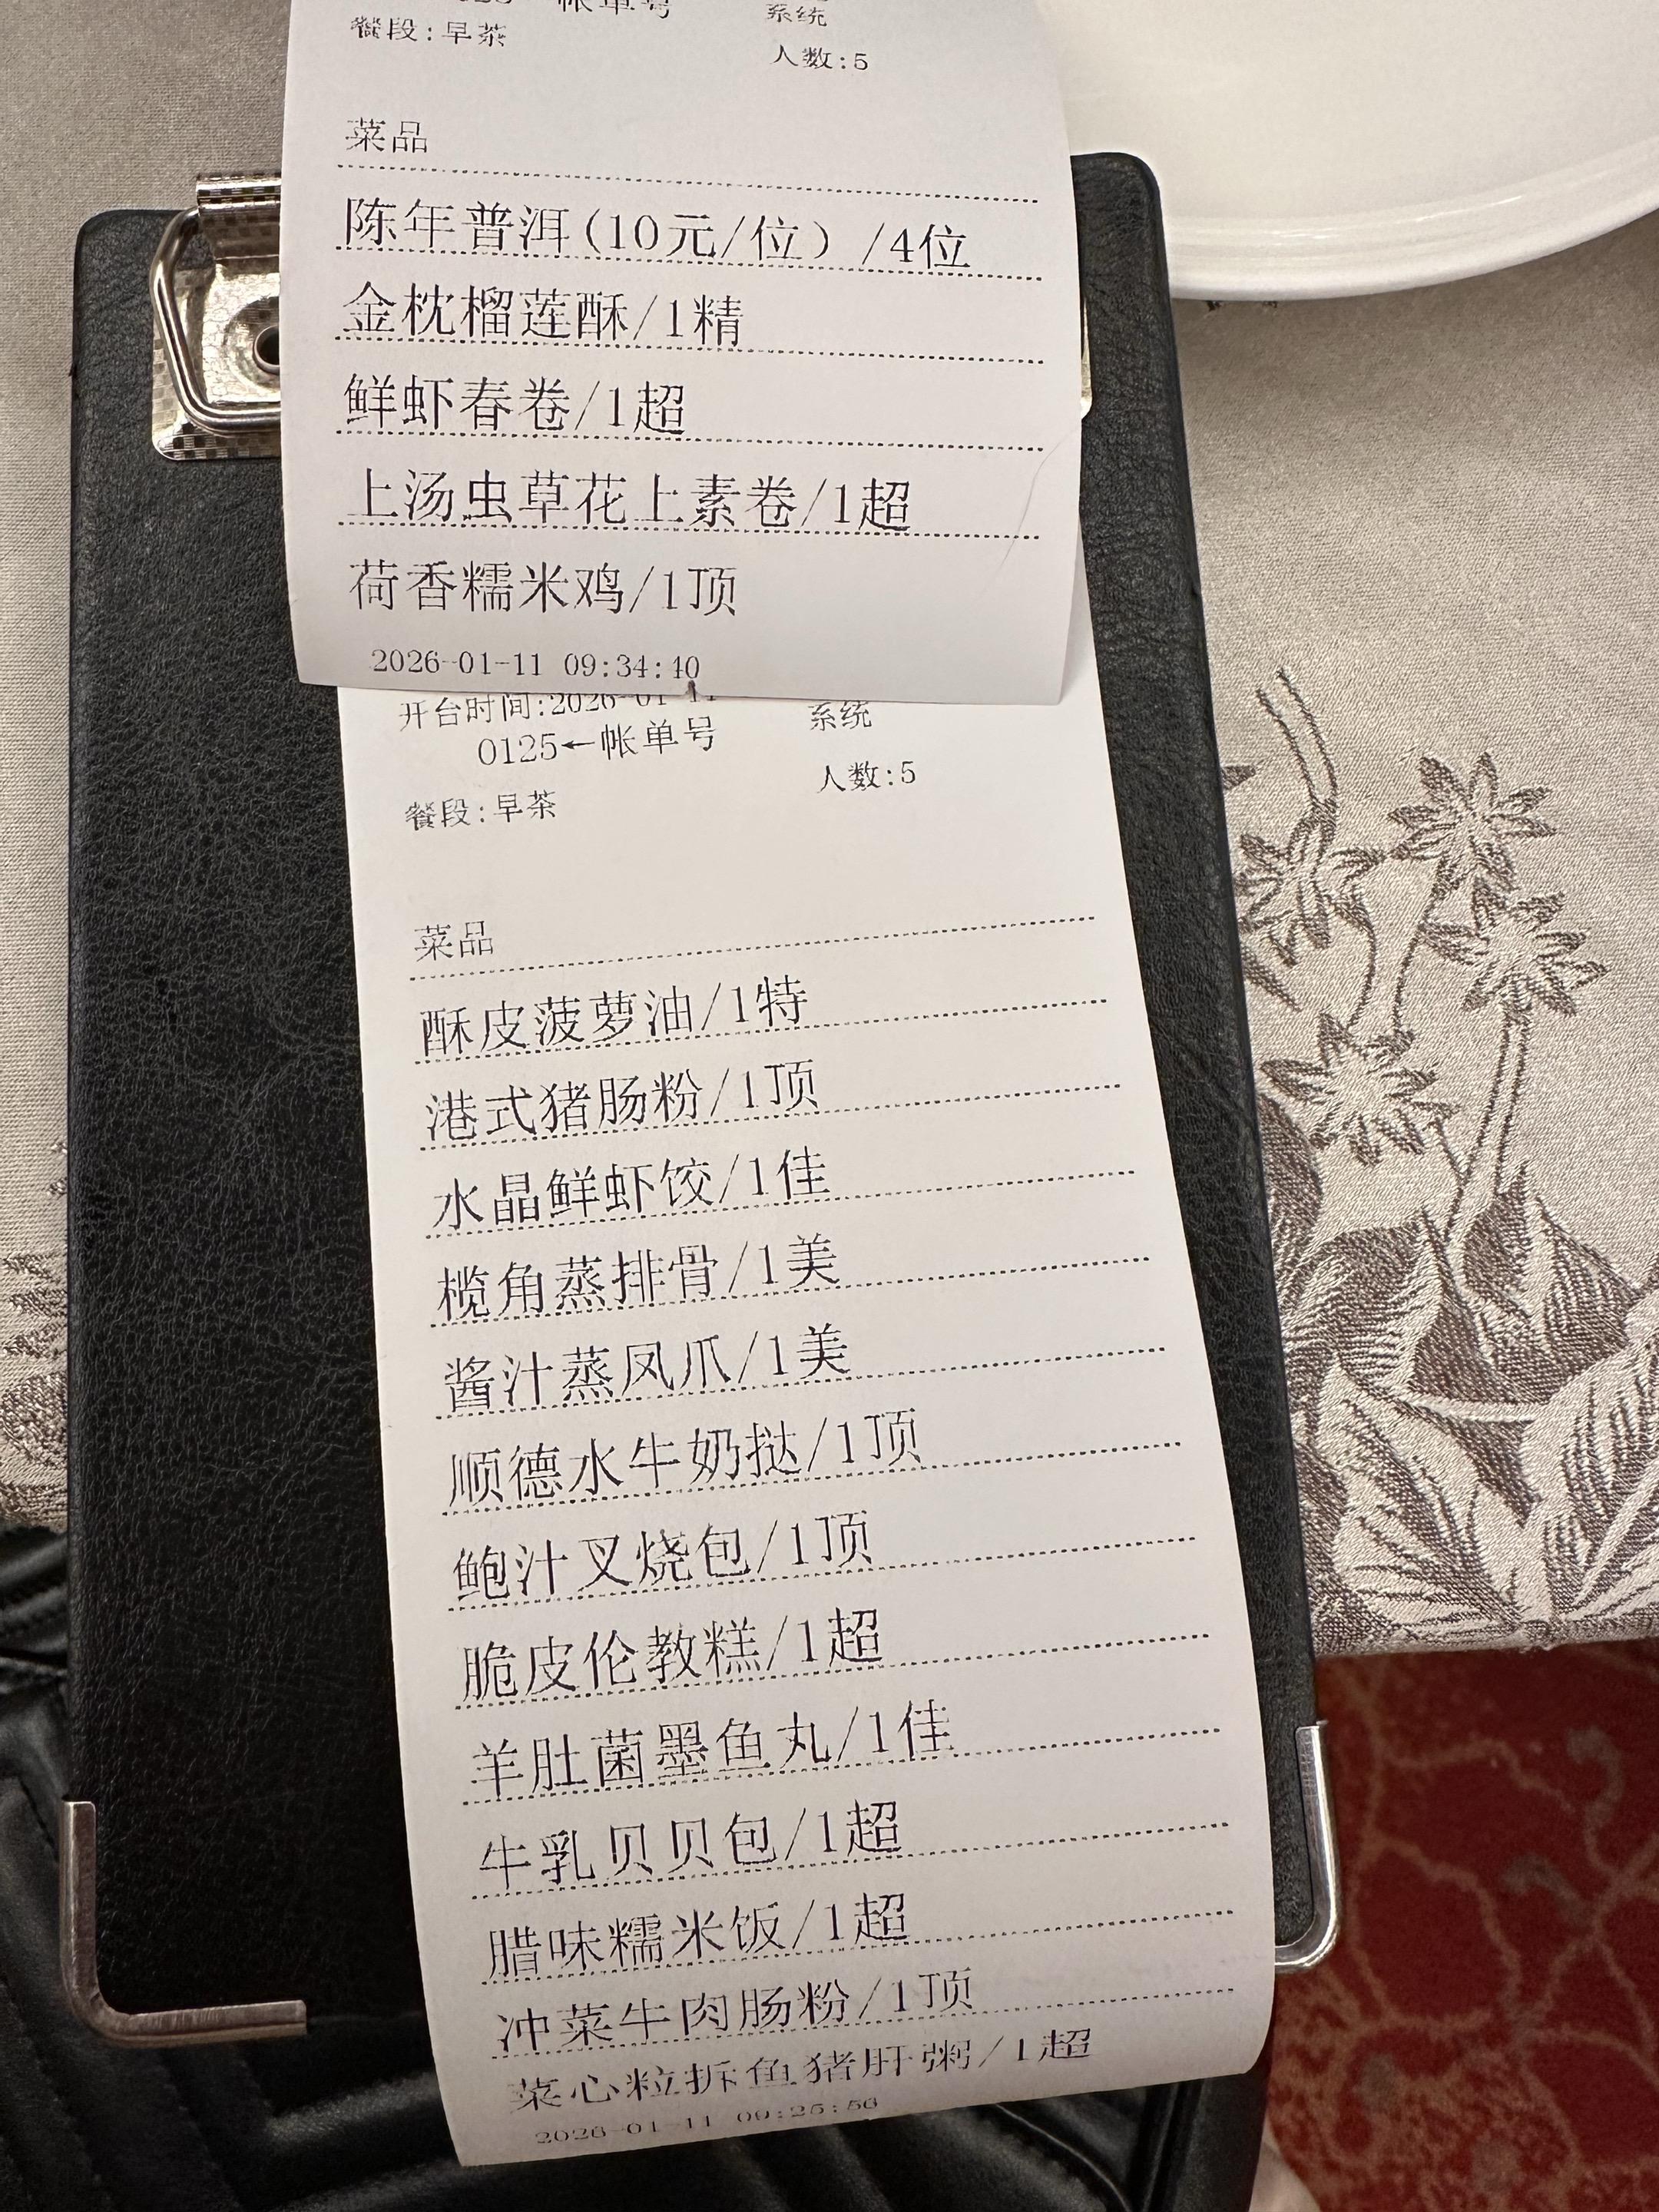 帐单号
系统
餐段:早茶
人数:5
菜品
陈年普洱(10元/位）/4位
金枕榴莲酥/1精
鲜虾春卷/1超
上汤虫草花上素卷/1超
荷香糯米鸡/1顶
2026-01-11 09:34:40
开台时间:2026-01-11
系统
0125←帐单号
人数:5
餐段:早茶
菜品
酥皮菠萝油/1特
港式猪肠粉/1顶
水晶鲜虾饺/1佳
榄角蒸排骨/1美
酱汁蒸凤爪/1美
顺德水牛奶挞/1顶
鲍汁叉烧包/1顶
脆皮伦教糕/1超
羊肚菌墨鱼丸/1佳
牛乳贝贝包/1超
腊味糯米饭/1超
冲菜牛肉肠粉/1顶
菜心粒拆鱼猪肝粥/1超
2026-01-11 09:25:56